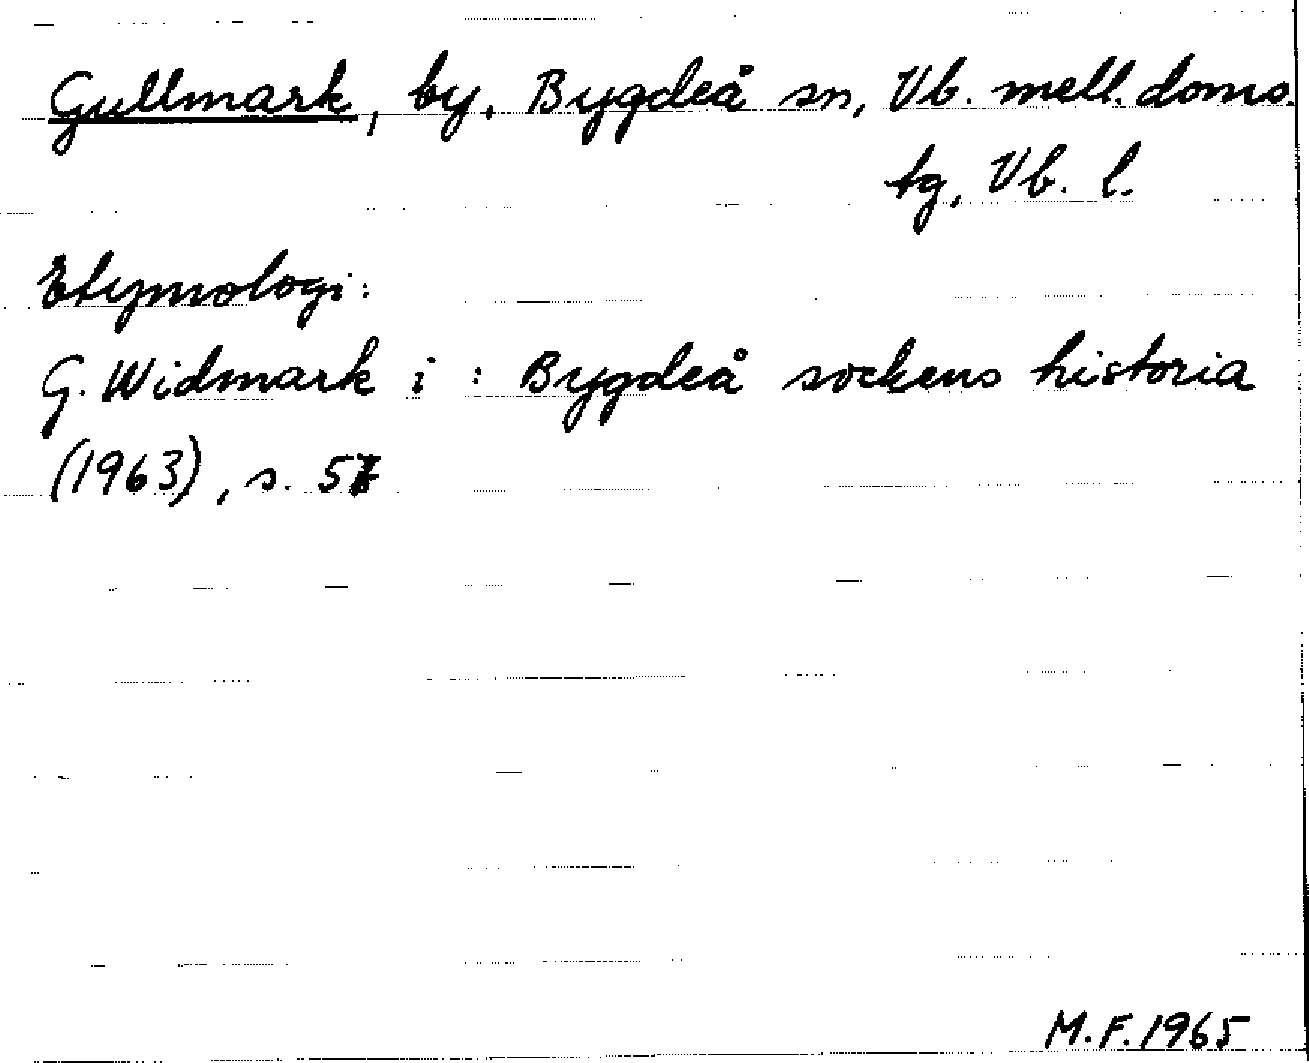 Gullmark, by, Bygdeå sn, Vb. mell. doms.
tg, Vb. l.
Etymologi:
G. Widmark i : Bygdeå sockens historia
(1963), s.
M.F. 1965